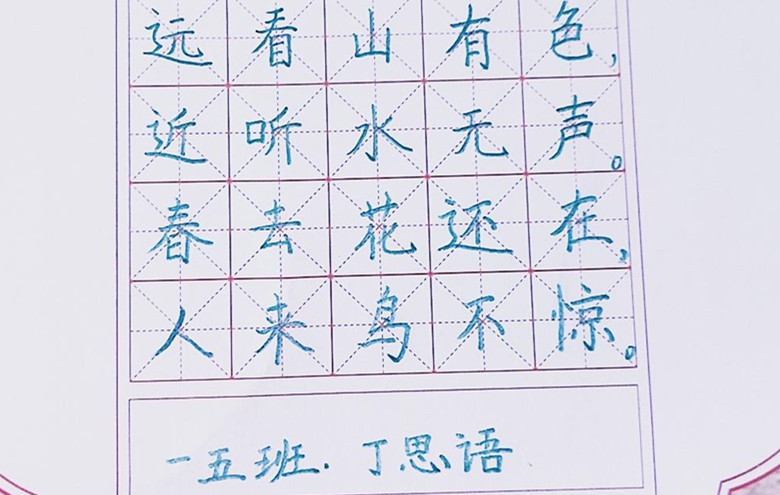 远看山有色,
近听水无声。
春去花还在,
人来鸟不惊。
一五班.丁思语